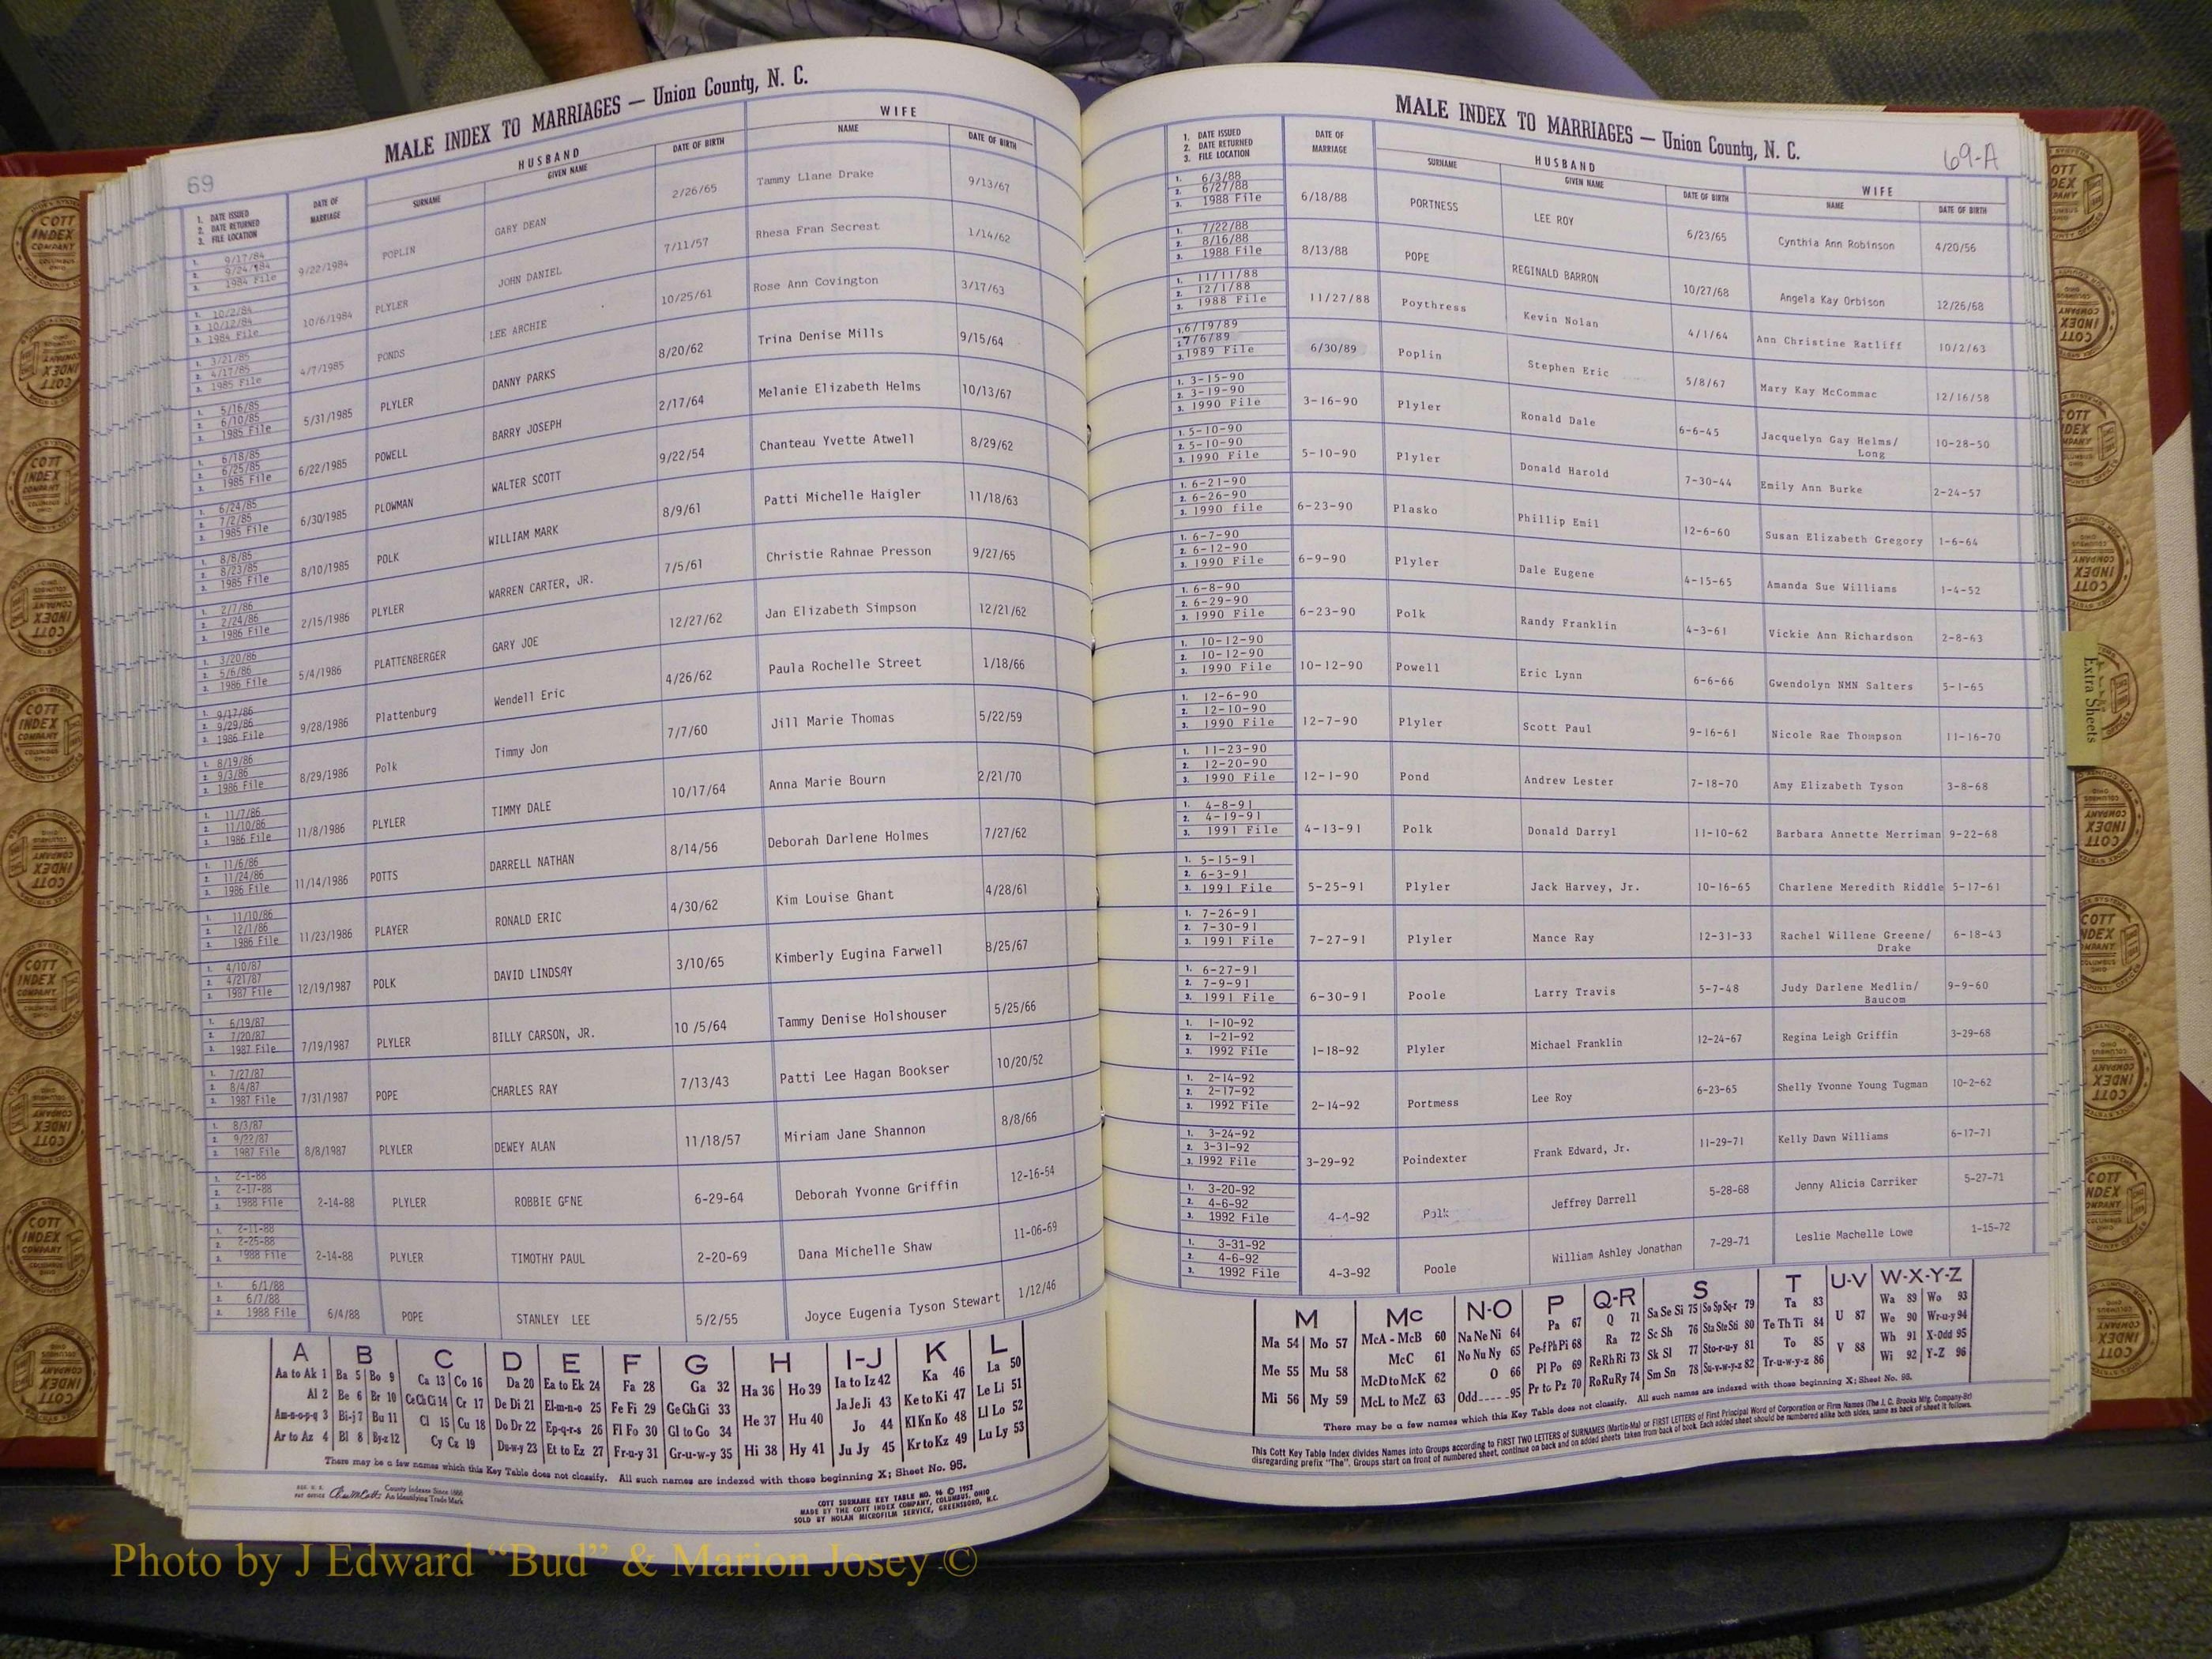 MALE INDEX TO MARRIAGES — Union County, N. C.
69
1. DATE ISSUED
2. DATE RETURNED
3. FILE LOCATION
DATE OF MARRIAGE
HUSBAND
SURNAME
GIVEN NAME
DATE OF BIRTH
WIFE
NAME
DATE OF BIRTH
1. 9/17/84 2. 9/24/984 3. 1984 File 9/22/1984 POPLIN GARY DEAN 2/26/65 Tammy Llane Drake 9/13/67
1. 10/2/84 2. 10/12/84 3. 1984 File 10/6/1984 PLYLER JOHN DANIEL 7/11/57 Rhesa Fran Secrest 1/14/62
1. 3/21/85 2. 4/17/85 3. 1985 File 4/7/1985 PONDS LEE ARCHIE 10/25/61 Rose Ann Covington 3/17/63
1. 5/16/85 2. 6/10/85 3. 1985 File 5/31/1985 PLYLER DANNY PARKS 8/20/62 Trina Denise Mills 9/15/64
1. 6/18/85 2. 6/25/85 3. 1985 File 6/22/1985 POWELL BARRY JOSEPH 2/17/64 Melanie Elizabeth Helms 10/13/67
1. 6/24/85 2. 7/2/85 3. 1985 File 6/30/1985 PLOWMAN WALTER SCOTT 9/22/54 Chanteau Yvette Atwell 8/29/62
1. 8/8/85 2. 8/23/85 3. 1985 File 8/10/1985 POLK WILLIAM MARK 8/9/61 Patti Michelle Haigler 11/18/63
1. 2/7/86 2. 2/24/86 3. 1986 File 2/15/1986 PLYLER WARREN CARTER, JR. 7/5/61 Christie Rahnae Presson 9/27/65
1. 3/20/86 2. 5/6/86 3. 1986 File 5/4/1986 PLATTENBERGER GARY JOE 12/27/62 Jan Elizabeth Simpson 12/21/62
1. 9/17/86 2. 9/29/86 3. 1986 File 9/28/1986 Plattenburg Wendell Eric 4/26/62 Paula Rochelle Street 1/18/66
1. 8/19/86 2. 9/3/86 3. 1986 File 8/29/1986 Polk Timmy Jon 7/7/60 Jill Marie Thomas 5/22/59
1. 11/7/86 2. 11/10/86 3. 1986 File 11/8/1986 PLYLER TIMMY DALE 10/17/64 Anna Marie Bourn 2/21/70
1. 11/6/86 2. 11/24/86 3. 1986 File 11/14/1986 POTTS DARRELL NATHAN 8/14/56 Deborah Darlene Holmes 7/27/62
1. 11/10/86 2. 12/1/86 3. 1986 File 11/23/1986 PLAYER RONALD ERIC 4/30/62 Kim Louise Ghant 4/28/61
1. 4/10/87 2. 4/21/87 3. 1987 File 12/19/1987 POLK DAVID LINDSAY 3/10/65 Kimberly Eugina Farwell 8/25/67
1. 6/19/87 2. 7/20/87 3. 1987 File 7/19/1987 PLYLER BILLY CARSON, JR. 10 /5/64 Tammy Denise Holshouser 5/25/66
1. 7/27/87 2. 8/4/87 3. 1987 File 7/31/1987 POPE CHARLES RAY 7/13/43 Patti Lee Hagan Bookser 10/20/52
1. 8/3/87 2. 9/22/87 3. 1987 File 8/8/1987 PLYLER DEWEY ALAN 11/18/57 Miriam Jane Shannon 8/8/66
1. 2-1-88 2. 2-17-88 3. 1988 File 2-14-88 PLYLER ROBBIE GENE 6-29-64 Deborah Yvonne Griffin 12-16-54
1. 2-11-88 2. 2-25-88 3. 1988 File 2-14-88 PLYLER TIMOTHY PAUL 2-20-69 Dana Michelle Shaw 11-06-69
1. 6/1/88 2. 6/7/88 3. 1988 File 6/4/88 POPE STANLEY LEE 5/2/55 Joyce Eugenia Tyson Stewart 1/12/46
A B C D E F G H I-J K L
Aa to Ak 1 Ba 5 Bo 9 Ca 13 Co 16 Da 20 Ea to Ek 24 Fa 28 Ga 32 Ha 36 Ho 39 Ia to Iz 42 Ka 46 La 50
Al 2 Be 6 Br 10 Ce Ch Ci 14 Cr 17 De Di 21 El-m-n-o 25 Fe Fi 29 Ge Gh Gi 33 He 37 Hu 40 Ja Je Ji 43 Ke to Ki 47 Le Li 51
Am-n-o-p-q 3 Bi-j 7 Bu 11 Cl 15 Cu 18 Do Dr 22 Ep-q-r-s 26 Fl Fo 30 Gl to Go 34 Hi 38 Hy 41 Jo 44 Kl Kn Ko 48 Ll Lo 52
Ar to Az 4 Bl 8 By-z 12 Cy Cz 19 Du-w-y 23 Et to Ez 27 Fr-u-y 31 Gr-u-w-y 35 Ju Jy 45 Kr to Kz 49 Lu Ly 53
There may be a few names which this Key Table does not classify. All such names are indexed with those beginning X; Sheet No. 95.
County Indexes Since 1888
An Identifying Trade Mark
COTT SURNAME KEY TABLE NO. 96 © 1952
MADE BY THE COTT INDEX COMPANY, COLUMBUS, OHIO
SOLD BY NOLAN MICROFILM SERVICE, GREENSBORO, N.C.
MALE INDEX TO MARRIAGES — Union County, N. C.
69-A
1. DATE ISSUED
2. DATE RETURNED
3. FILE LOCATION
DATE OF MARRIAGE
HUSBAND
SURNAME
GIVEN NAME
DATE OF BIRTH
WIFE
NAME
DATE OF BIRTH
1. 6/3/88 2. 6/27/88 3. 1988 File 6/18/88 PORTNESS LEE ROY 6/23/65 Cynthia Ann Robinson 4/20/56
1. 7/22/88 2. 8/16/88 3. 1988 File 8/13/88 POPE REGINALD BARRON 10/27/68 Angela Kay Orbison 12/26/68
1. 11/11/88 2. 12/1/88 3. 1988 File 11/27/88 Poythress Kevin Nolan 4/1/64 Ann Christine Ratliff 10/2/63
1. 6/19/89 2. 7/6/89 3. 1989 File 6/30/89 Poplin Stephen Eric 5/8/67 Mary Kay McCommac 12/16/58
1. 3-15-90 2. 3-19-90 3. 1990 File 3-16-90 Plyler Ronald Dale 6-6-45 Jacquelyn Gay Helms/ Long 10-28-50
1. 5-10-90 2. 5-10-90 3. 1990 File 5-10-90 Plyler Donald Harold 7-30-44 Emily Ann Burke 2-24-57
1. 6-21-90 2. 6-26-90 3. 1990 file 6-23-90 Plasko Phillip Emil 12-6-60 Susan Elizabeth Gregory 1-6-64
1. 6-7-90 2. 6-12-90 3. 1990 File 6-9-90 Plyler Dale Eugene 4-15-65 Amanda Sue Williams 1-4-52
1. 6-8-90 2. 6-29-90 3. 1990 File 6-23-90 Polk Randy Franklin 4-3-61 Vickie Ann Richardson 2-8-63
1. 10-12-90 2. 10-12-90 3. 1990 File 10-12-90 Powell Eric Lynn 6-6-66 Gwendolyn NMN Salters 5-1-65
1. 12-6-90 2. 12-10-90 3. 1990 File 12-7-90 Plyler Scott Paul 9-16-61 Nicole Rae Thompson 11-16-70
1. 11-23-90 2. 12-20-90 3. 1990 File 12-1-90 Pond Andrew Lester 7-18-70 Amy Elizabeth Tyson 3-8-68
1. 4-8-91 2. 4-19-91 3. 1991 File 4-13-91 Polk Donald Darryl 11-10-62 Barbara Annette Merriman 9-22-68
1. 5-15-91 2. 6-3-91 3. 1991 File 5-25-91 Plyler Jack Harvey, Jr. 10-16-65 Charlene Meredith Riddle 5-17-61
1. 7-26-91 2. 7-30-91 3. 1991 File 7-27-91 Plyler Mance Ray 12-31-33 Rachel Willene Greene/ Drake 6-18-43
1. 6-27-91 2. 7-9-91 3. 1991 File 6-30-91 Poole Larry Travis 5-7-48 Judy Darlene Medlin/ Baucom 9-9-60
1. 1-10-92 2. 1-21-92 3. 1992 File 1-18-92 Plyler Michael Franklin 12-24-67 Regina Leigh Griffin 3-29-68
1. 2-14-92 2. 2-17-92 3. 1992 File 2-14-92 Portmess Lee Roy 6-23-65 Shelly Yvonne Young Tugman 10-2-62
1. 3-24-92 2. 3-31-92 3. 1992 File 3-29-92 Poindexter Frank Edward, Jr. 11-29-71 Kelly Dawn Williams 6-17-71
1. 3-20-92 2. 4-6-92 3. 1992 File 4-4-92 Polk Jeffrey Darrell 5-28-68 Jenny Alicia Carriker 5-27-71
1. 3-31-92 2. 4-6-92 3. 1992 File 4-3-92 Poole William Ashley Jonathan 7-29-71 Leslie Machelle Lowe 1-15-72
M Mc N-O P Q-R S T U-V W-X-Y-Z
Ma 54 Mo 57 McA - McB 60 Na Ne Ni 64 Pa 67 Q 71 Sa Se Si 75 So Sp Sq-r 79 Ta 83 U 87 Wa 89 Wo 93
Me 55 Mu 58 McC 61 No Nu Ny 65 Pe-f Ph Pi 68 Ra 72 Sc Sh 76 Sta Ste Sti 80 Te Th Ti 84 V 88 We 90 Wr-u-y 94
Mi 56 My 59 McD to McK 62 O 66 Pl Po 69 Re Rh Ri 73 Sk Sl 77 Sto-r-u-y 81 To 85 Wh 91 X-Odd 95
McL to McZ 63 Odd 95 Pr to Pz 70 Ro Ru Ry 74 Sm Sn 78 Su-v-w-y-z 82 Tr-u-w-y-z 86 Wi 92 Y-Z 96
There may be a few names which this Key Table does not classify. All such names are indexed with those beginning X; Sheet No. 95.
This Cott Key Table Index divides Names into Groups according to FIRST TWO LETTERS of SURNAMES (Martin-Ma) or FIRST LETTERS of First Principal Word of Corporation or Firm Names (The J. C. Brooks Mfg. Company-Br)
disregarding prefix "The". Groups start on front of numbered sheet, continue on back and on added sheets taken from back of book. Each added sheet should be numbered alike both sides, same as back of sheet it follows.
Extra Sheets
COTT INDEX COMPANY COLUMBUS OHIO
Photo by J Edward “Bud” & Marion Josey ©